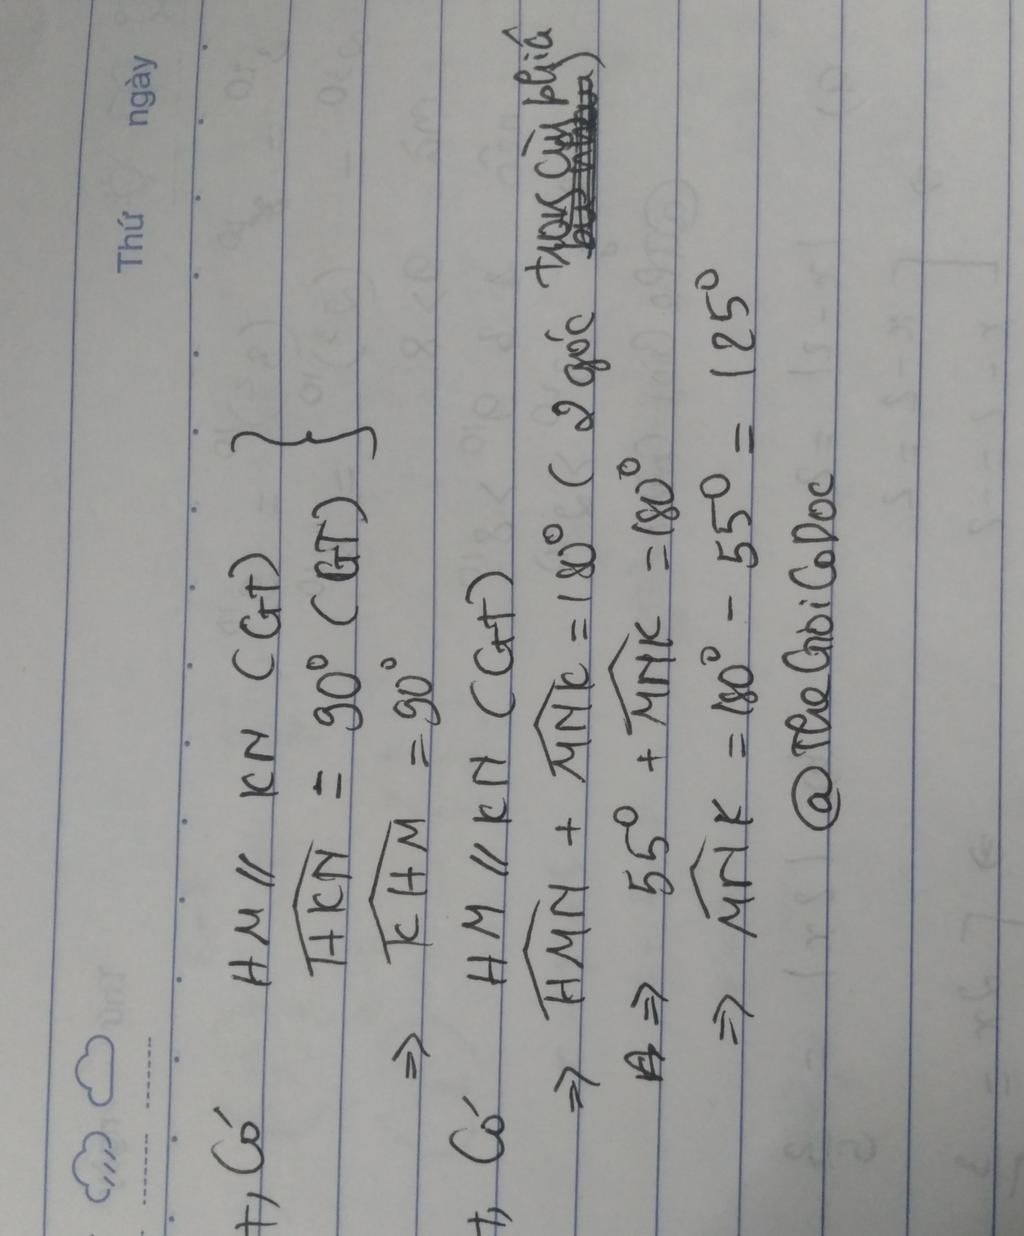 Thứ ngày
+, Có HM // KN (GT)
HKN = 90° (GT)
⇒ KHM = 90°
+, Có HM // KN (GT)
⇒ HMN + MNK = 180° (2 góc trong cùng phía)
⇒ 55° + MNK = 180°
⇒ MNK = 180° - 55° = 125°